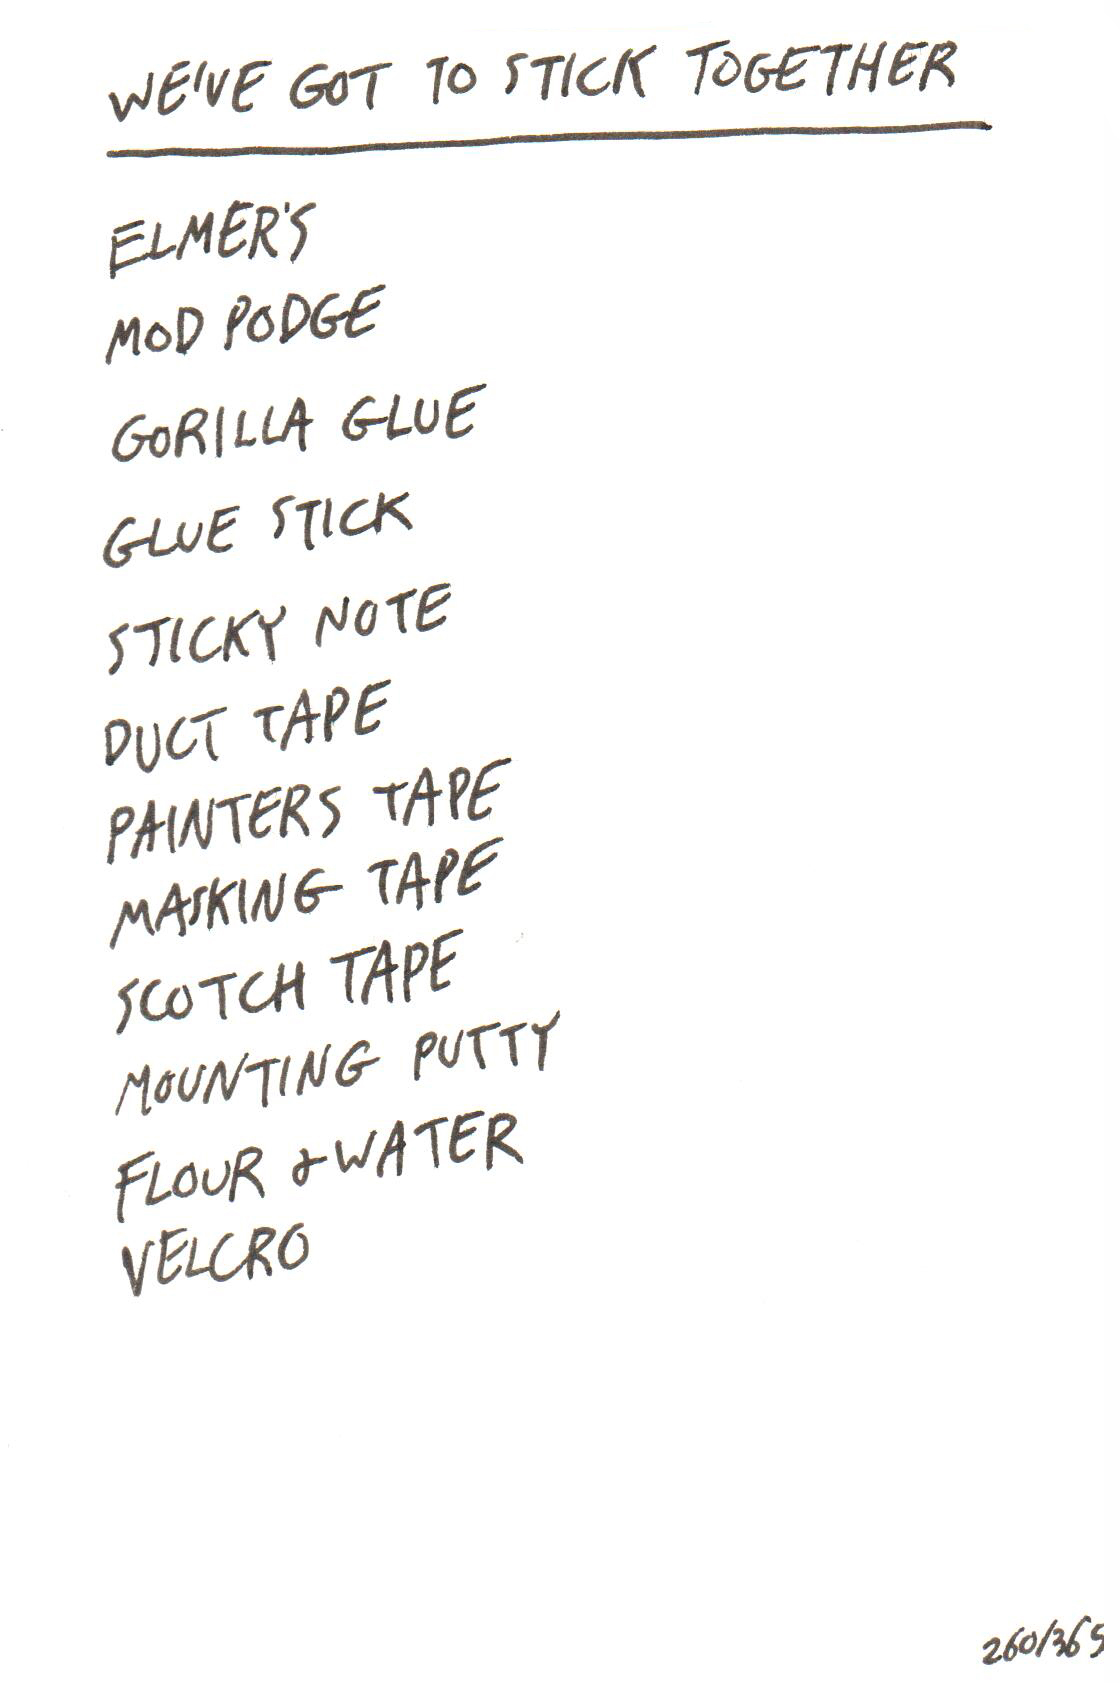 WE'VE GOT TO STICK TOGETHER
ELMER'S
MOD PODGE
GORILLA GLUE
GLUE STICK
STICKY NOTE
DUCT TAPE
PAINTERS TAPE
MASKING TAPE
SCOTCH TAPE
MOUNTING PUTTY
FLOUR & WATER
VELCRO
260/365